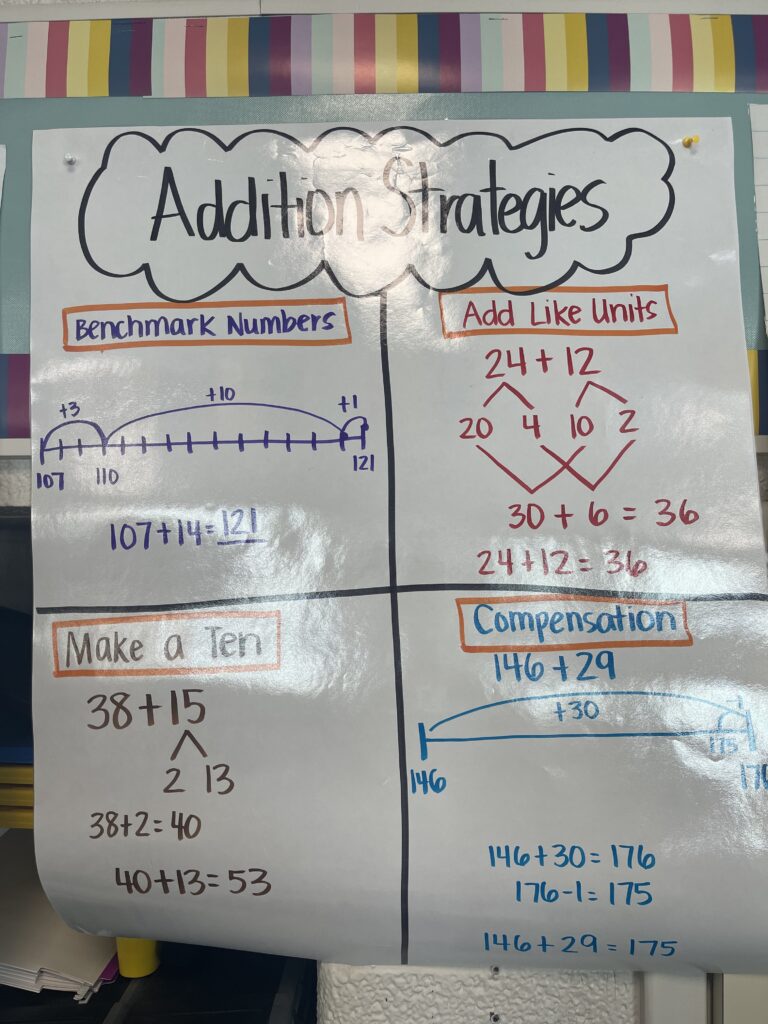 Addition Strategies
Benchmark Numbers
+3 +10 +1
107 110 121
107+14=121
Add Like Units
24+12
20 4 10 2
30+6=36
24+12=36
Make a Ten
38+15
2 13
38+2=40
40+13=53
Compensation
146+29
+30
175
146 176
146+30=176
176-1=175
146+29=175